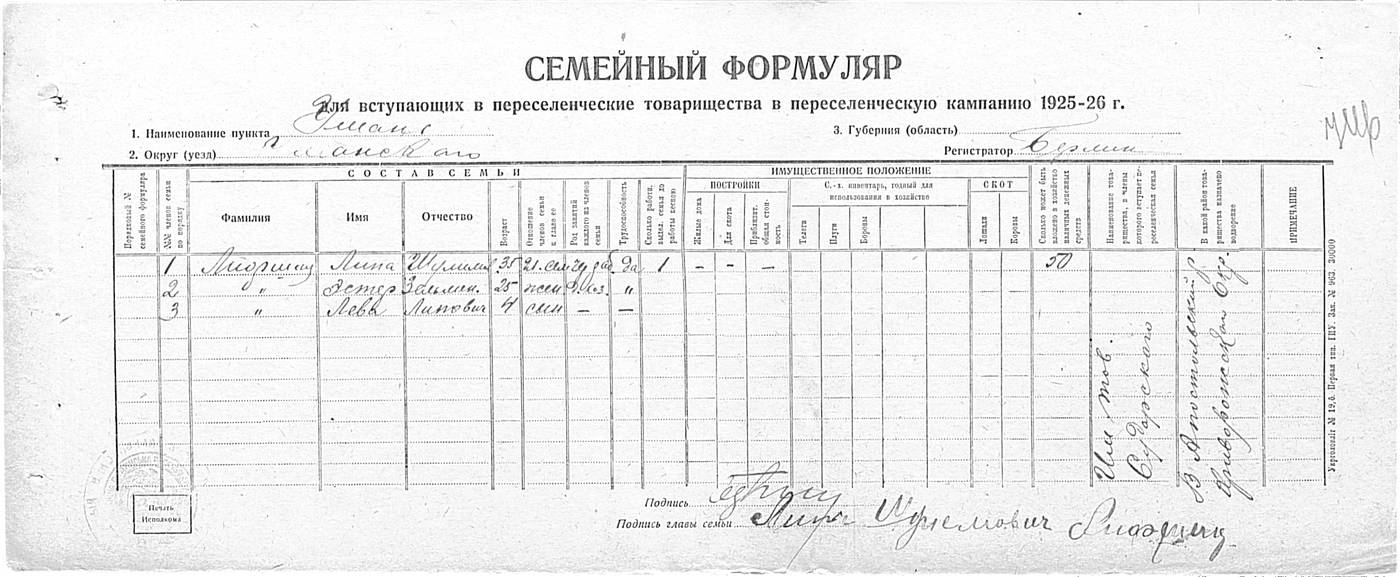 СЕМЕЙНЫЙ ФОРМУЛЯР
для вступающих в переселенческие товарищества в переселенческую кампанию 1925-26 г.
1. Наименование пункта Умань
3. Губерния (область)
2. Округ (уезд) Уманского
Регистратор Берлин
Порядковый № семейного формуляра
№№ членов семьи по порядку
СОСТАВ СЕМЬИ
Фамилия
Имя
Отчество
Возраст
Отношение членов семьи к главе ее
Род занятий каждого из членов семьи
Трудоспособность
Сколько работн. выдел. семья до работы весною
ИМУЩЕСТВЕННОЕ ПОЛОЖЕНИЕ
ПОСТРОЙКИ
Жилые дома
Для скота
Приблизит. общая стоимость
С.-х. инвентарь, годный для использования в хозяйстве
Телеги
Плуги
Бороны
СКОТ
Лошади
Коровы
Сколько может быть вложено в хозяйство наличных денежных средств
Наименование товарищества, в члены которого вступает переселенческая семья
В какой район товарищества назначено водворение
ПРИМЕЧАНИЕ
1 Липа 35 да 1 – – – 50
2 " Эстер 25 жен "
3 " Лева Липович 4 сын – –
Им. тов.
В Апостольский р
Криворожского Окр.
Печать Исполкома
Подпись
Подпись главы семьи Липа
Укрголовліт № 19,6. Первая тип. ГПУ. Зак. № 963. 3000